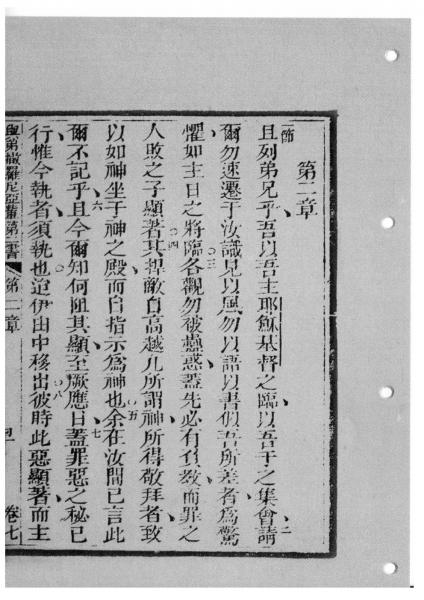 第二章
一節 且列弟兄乎吾以吾主耶穌基督之臨以吾于之集會請二
爾勿速遷于汝識見以風勿以語以書似吾所差者為驚
懼如主日之將臨三各觀勿被蠱惑蓋先必有負教而罪之
人敗之子顯著四其悍敵自高越凡所謂神所得敬拜者致
以如神坐于神之殿而自指示為神也五余在汝間已言此
爾不記乎六且今爾知何阻其顯至厥應日七蓋罪惡之秘已
行惟今執者須執也迨伊由中移出八彼時此惡顯著而主
與弟撒羅尼亞輩第二書 第二章 卷七